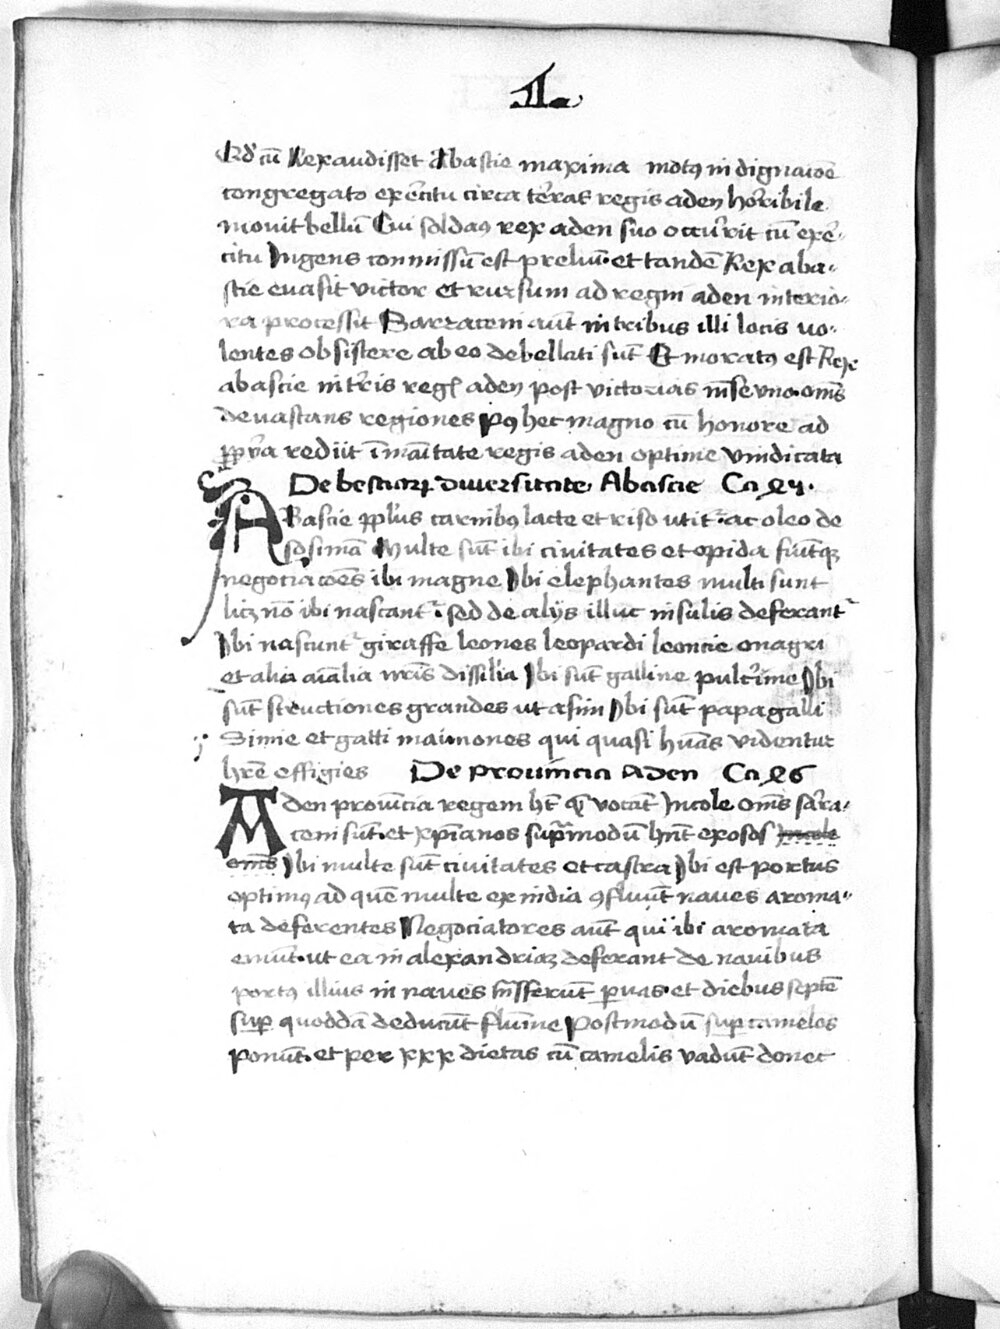 II.
Qd' cū Rex audisset Abastie maxima motꝯ indignaiōe
congregato ex̄citu circa t̄ras regis aden horribile
mouit bellū Cui soldaꝯ rex aden suo occurrit cū exer-
citu Ingens commissū est preliū. et tandē Rex aba-
stie euasit victor et rursum ad regnū aden interio-
ra processit Sarraceni aūt in tribus illi locis uo-
lentes obsistere ab eo debellati sūt Et moratꝯ est Rex
abascie in t̄ris regꝭ aden post victorias mēse vno. om̄s
deuastans regiones Pꝯ hec magno cū honore ad
ꝓp̄a rediit īmāitate regis aden optime vindicata
De bestiarꝝ diuersitate Abascie Ca 45.
ABascie ppl's carnibꝯ lacte et riso utit᷑. ac oleo de
sosimā Multe sūt ibi ciuitates et opida fiūtqꝫ
negociacōes ibi magne Ibi elephantes multi sunt
licꝫ nō ibi nascant᷑. sed de alijs illuc insulis deferant᷑
Ibi nascunt᷑ giraffe leones leopardi leoncie onagri
et alia aīalia nr̄is dissil'ia Ibi sūt galline pulcr̄ime Ibi
sūt structiones grandes ut asini Ibi sūt papagalli
Simie et gatti maimones qui quasi hūas videntur
hr̄e effigies De prouincia Aden Ca 46
Aden prouīcia regem hꝫ qē vocāt Incole om̄s sarra-
ceni sūt. et xp̄ianos supᷓmodū hn̄t exosos Incole
om̄s Ibi multe sūt ciuitates et castra Ibi est portus
optimꝯ ad quē multe ex india ꝯfluūt naues aroma-
ta deferentes Negociatores aūt qui ibi aromata
emūt. ut ea in alexandriaꝫ deferant de nauibus
portꝯ illius in naues tn̄sferunt ꝑuas. et diebus septē
suꝑ quoddā deducūt flumē Postmodū suꝑ camelos
ponūt. et per xxx dietas cū camelis vadūt donec